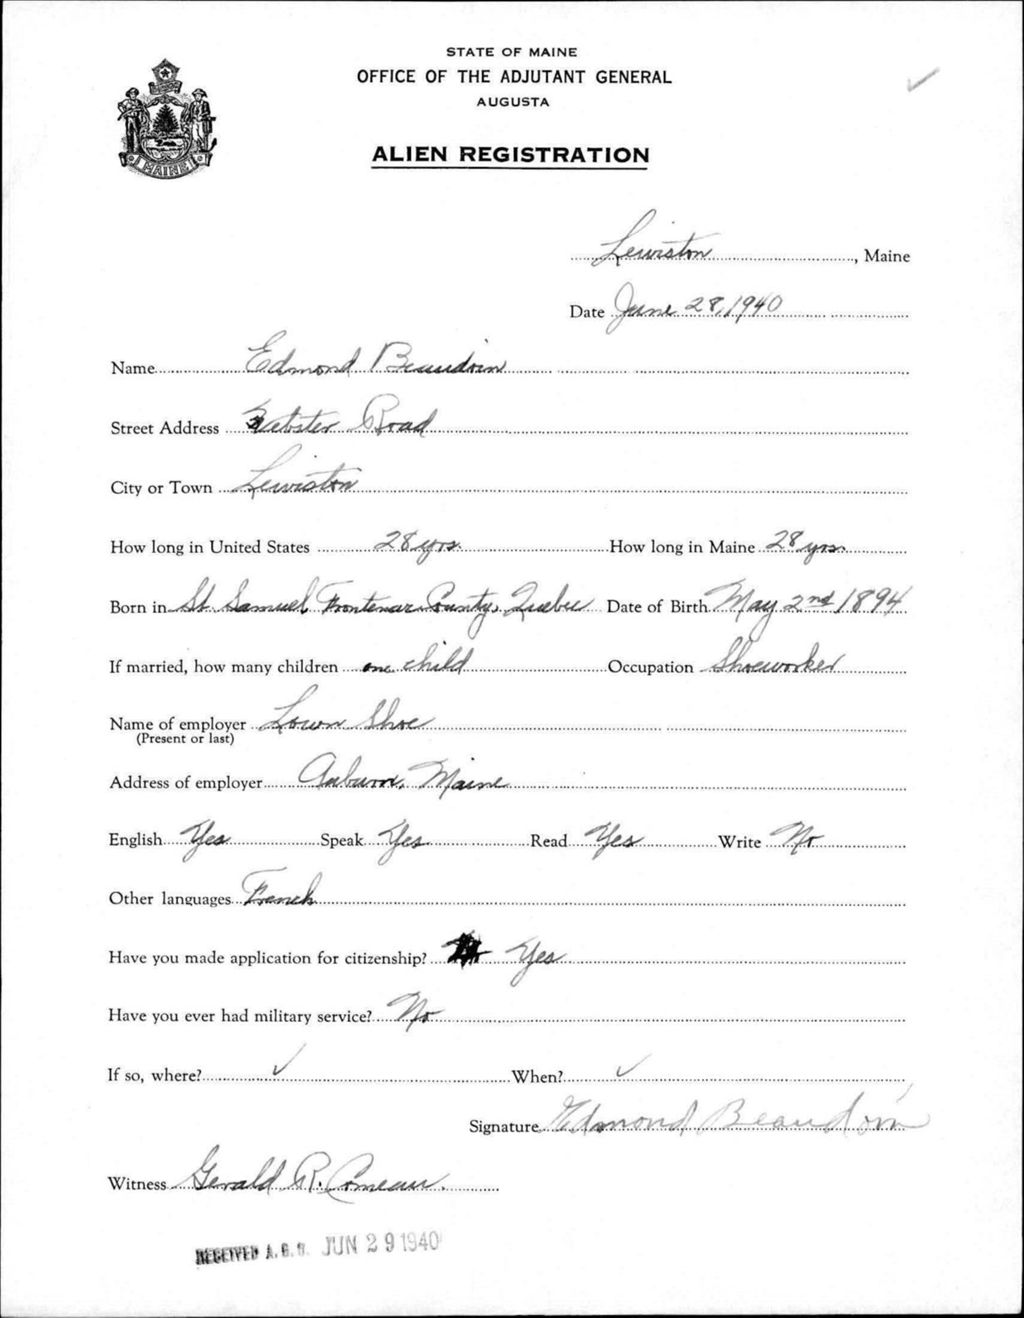 STATE OF MAINE
OFFICE OF THE ADJUTANT GENERAL
AUGUSTA
ALIEN REGISTRATION
MAINE
Lewiston, Maine
Date June 28, 1940
Name Edmond Beaudoin
Street Address Webster Road
City or Town Lewiston
How long in United States 28 yrs. How long in Maine 28 yrs.
Born in St. Samuel Frontenac County, Quebec Date of Birth May 2nd 1894
If married, how many children one child Occupation Shoeworker
Name of employer Lown Shoe
(Present or last)
Address of employer Auburn, Maine
English Yes Speak Yes Read Yes Write No
Other languages French
Have you made application for citizenship? Yes
Have you ever had military service? No
If so, where? ✓ When? ✓
Signature Edmond Beaudoin
Witness Gerald R. Comeau.
RECEIVED A.G.O. JUN 29 1940